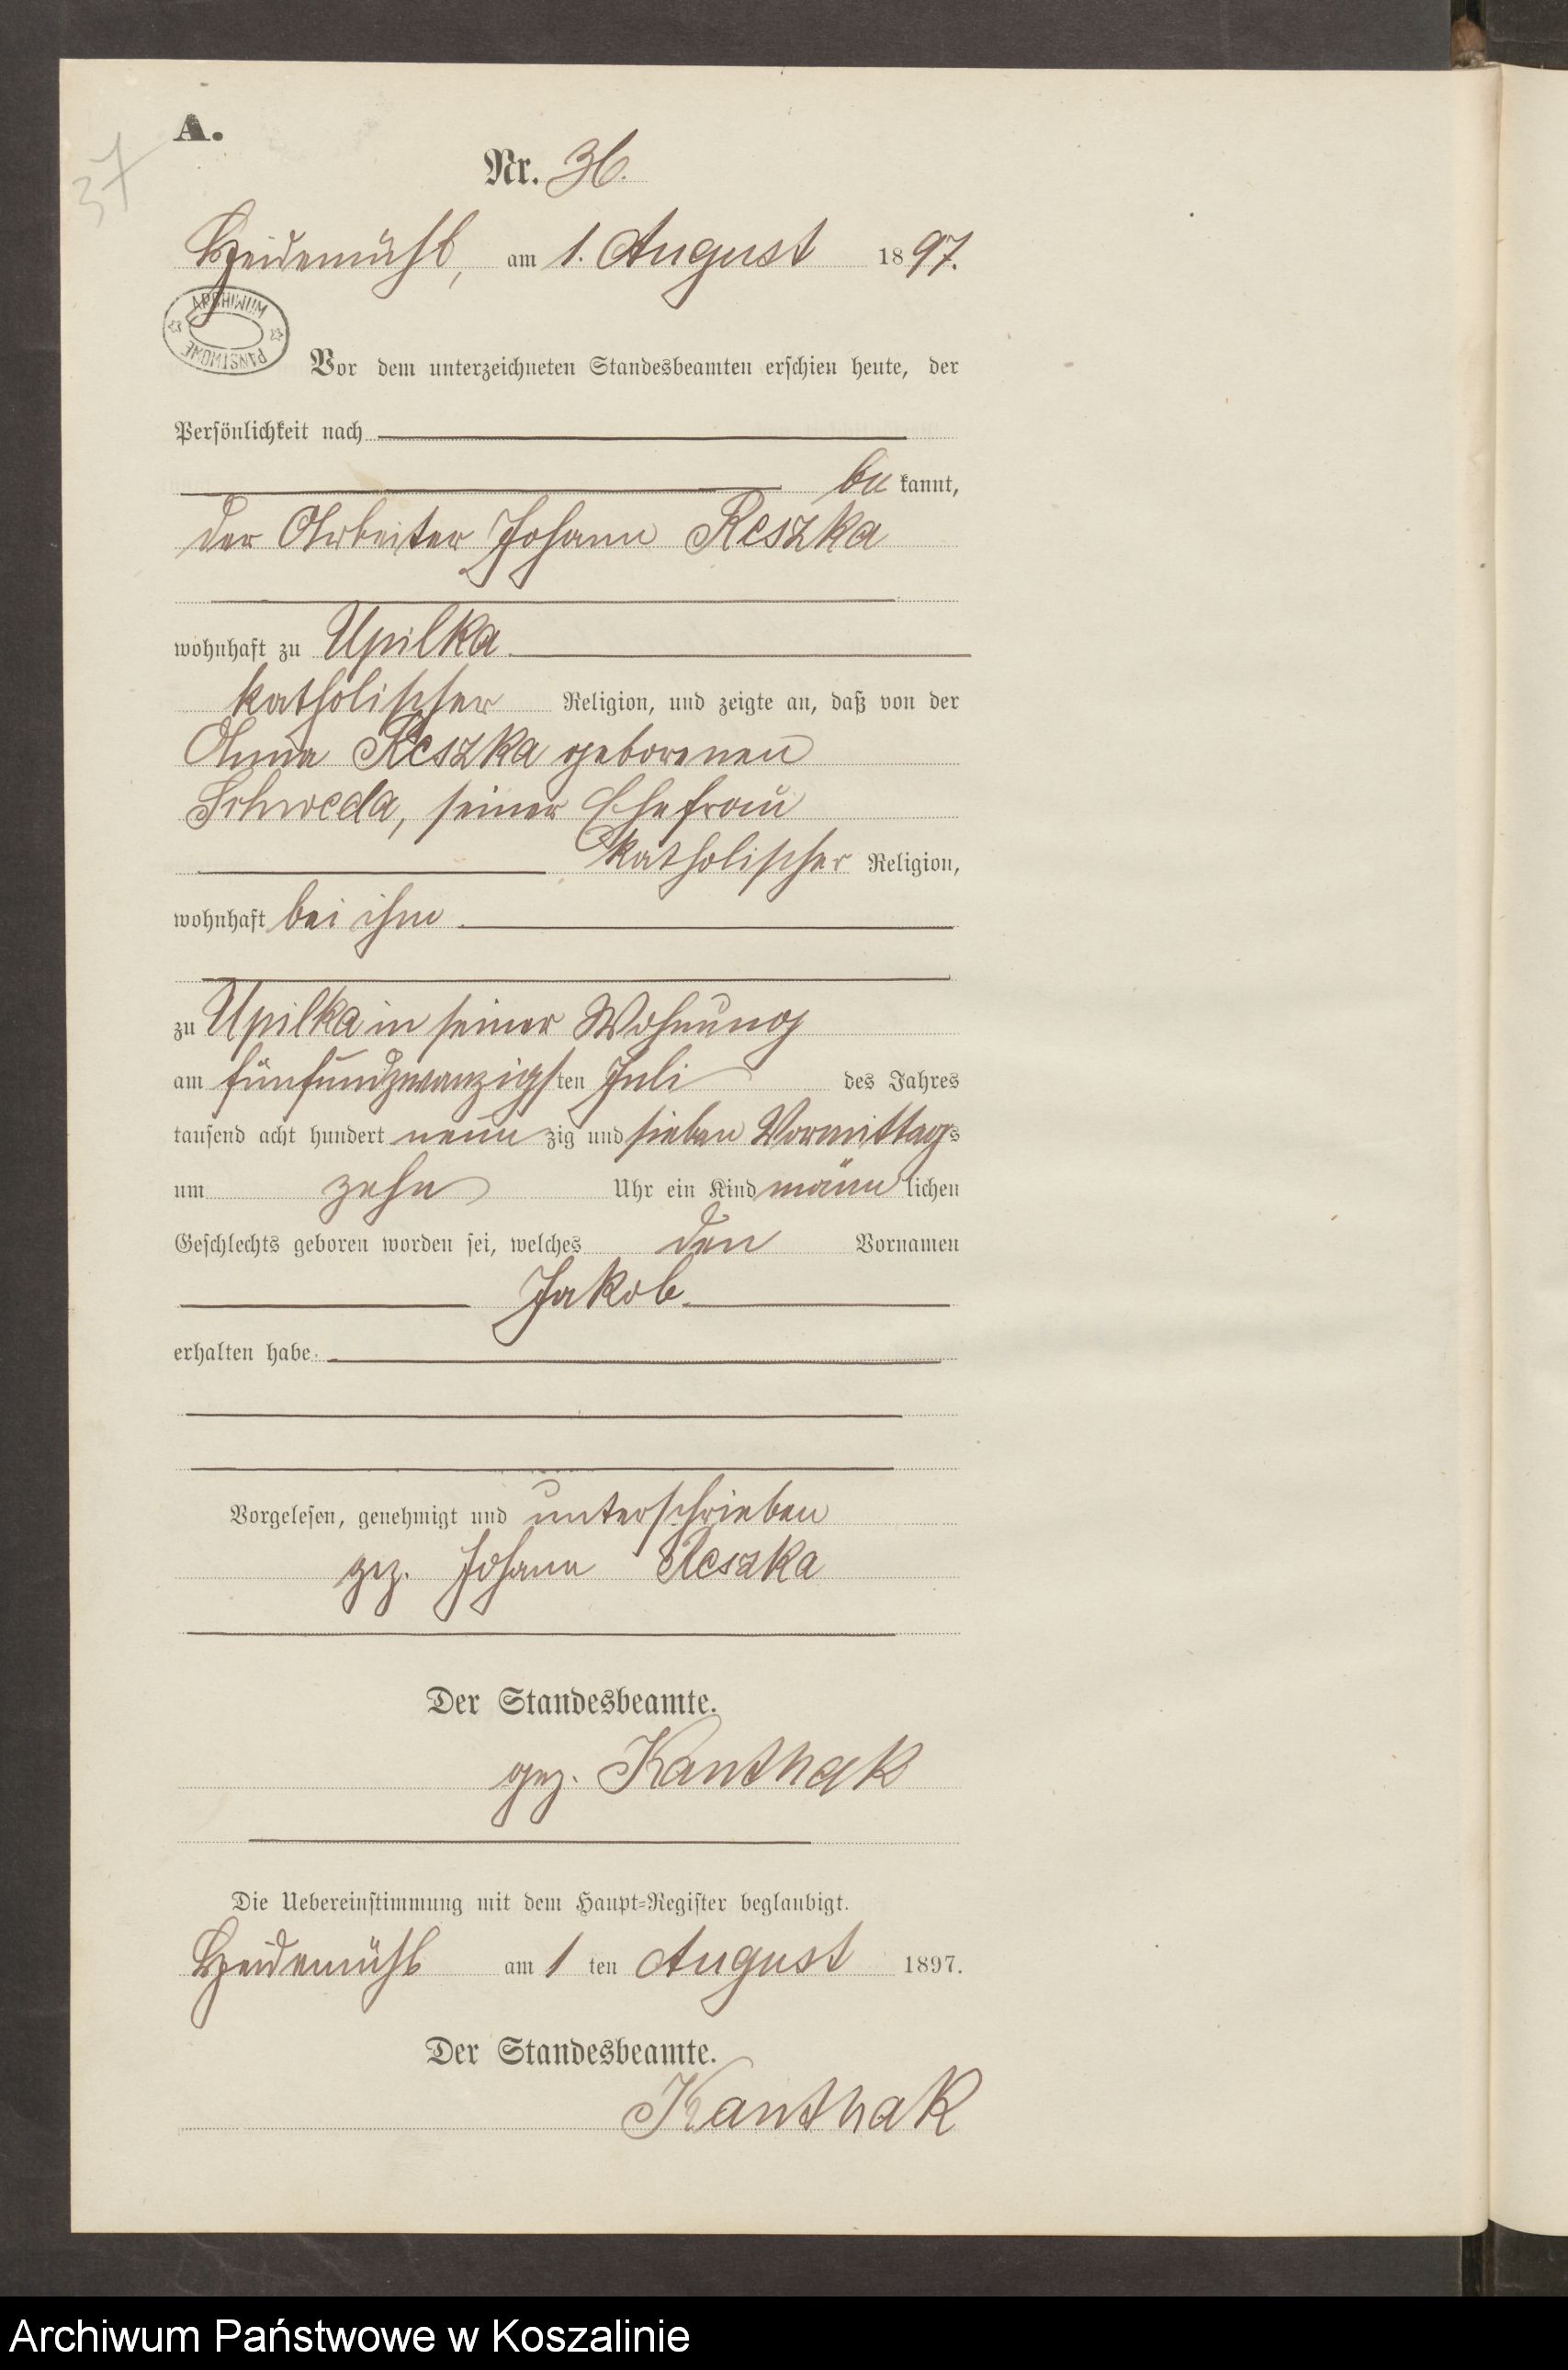 A.
37
Nr. 36.
Heidemühl, am 1. August 1897.
ARCHIWUM PAŃSTWOWE
Vor dem unterzeichneten Standesbeamten erschien heute, der
Persönlichkeit nach
be kannt,
der Arbeiter Johann Reszka
wohnhaft zu Upilka
katholischer Religion, und zeigte an, daß von der
Anna Reszka geborenen
Schweda, seiner Ehefrau
katholischer Religion,
wohnhaft bei ihm
zu Upilka in seiner Wohnung
am fünfundzwanzigsten Juli des Jahres
tausend acht hundert neunzig und sieben Vormittags
um zehn Uhr ein Kind männlichen
Geschlechts geboren worden sei, welches den Vornamen
Jakob
erhalten habe.
Vorgelesen, genehmigt und unterschrieben
gez. Johann Reszka
Der Standesbeamte.
gez. Kanthak
Die Uebereinstimmung mit dem Haupt-Register beglaubigt.
Heidemühl am 1 ten August 1897.
Der Standesbeamte.
Kanthak
Archiwum Państwowe w Koszalinie